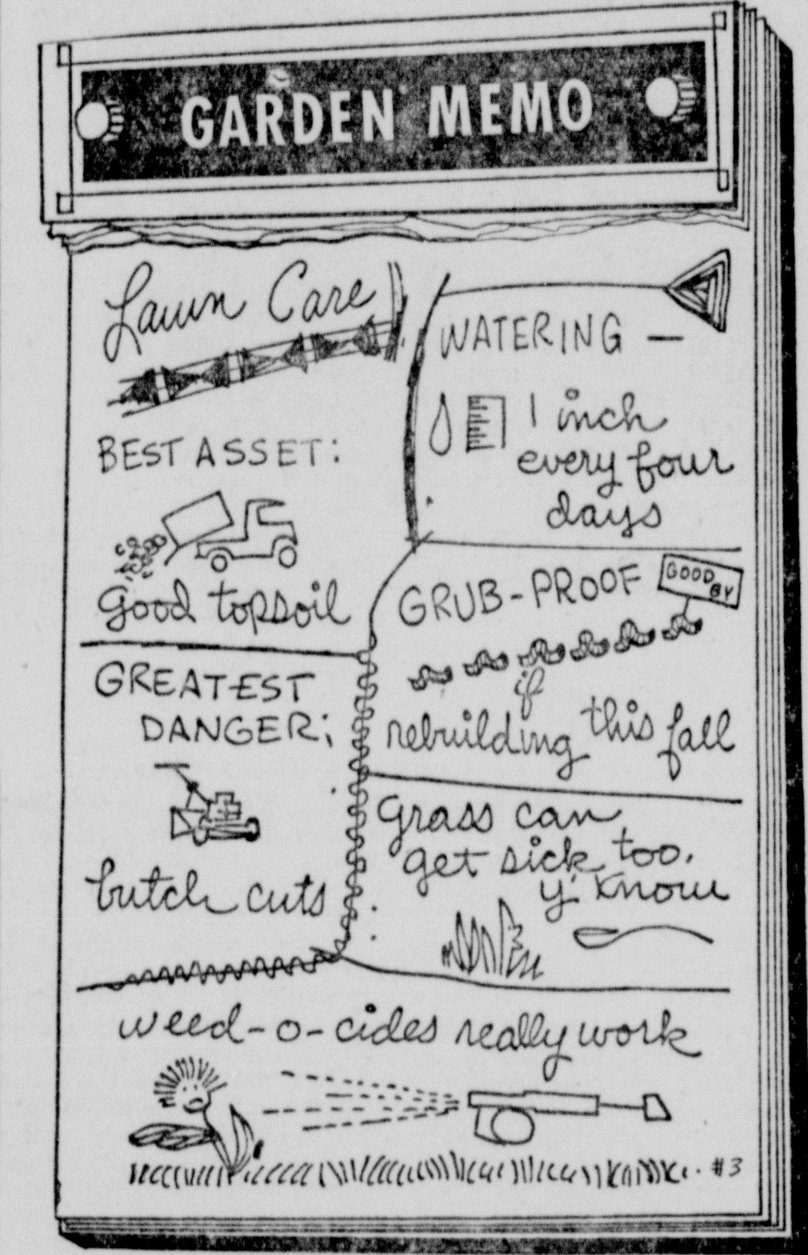 GARDEN MEMO
Lawn Care
BEST ASSET:
Good topsoil
GREATEST
DANGER;
butch cuts
WATERING —
1 inch
every four
days
GRUB-PROOF
GOOD
BY
if
rebuilding this fall
Grass can
get sick too,
y' know
weed-o-cides really work
#3